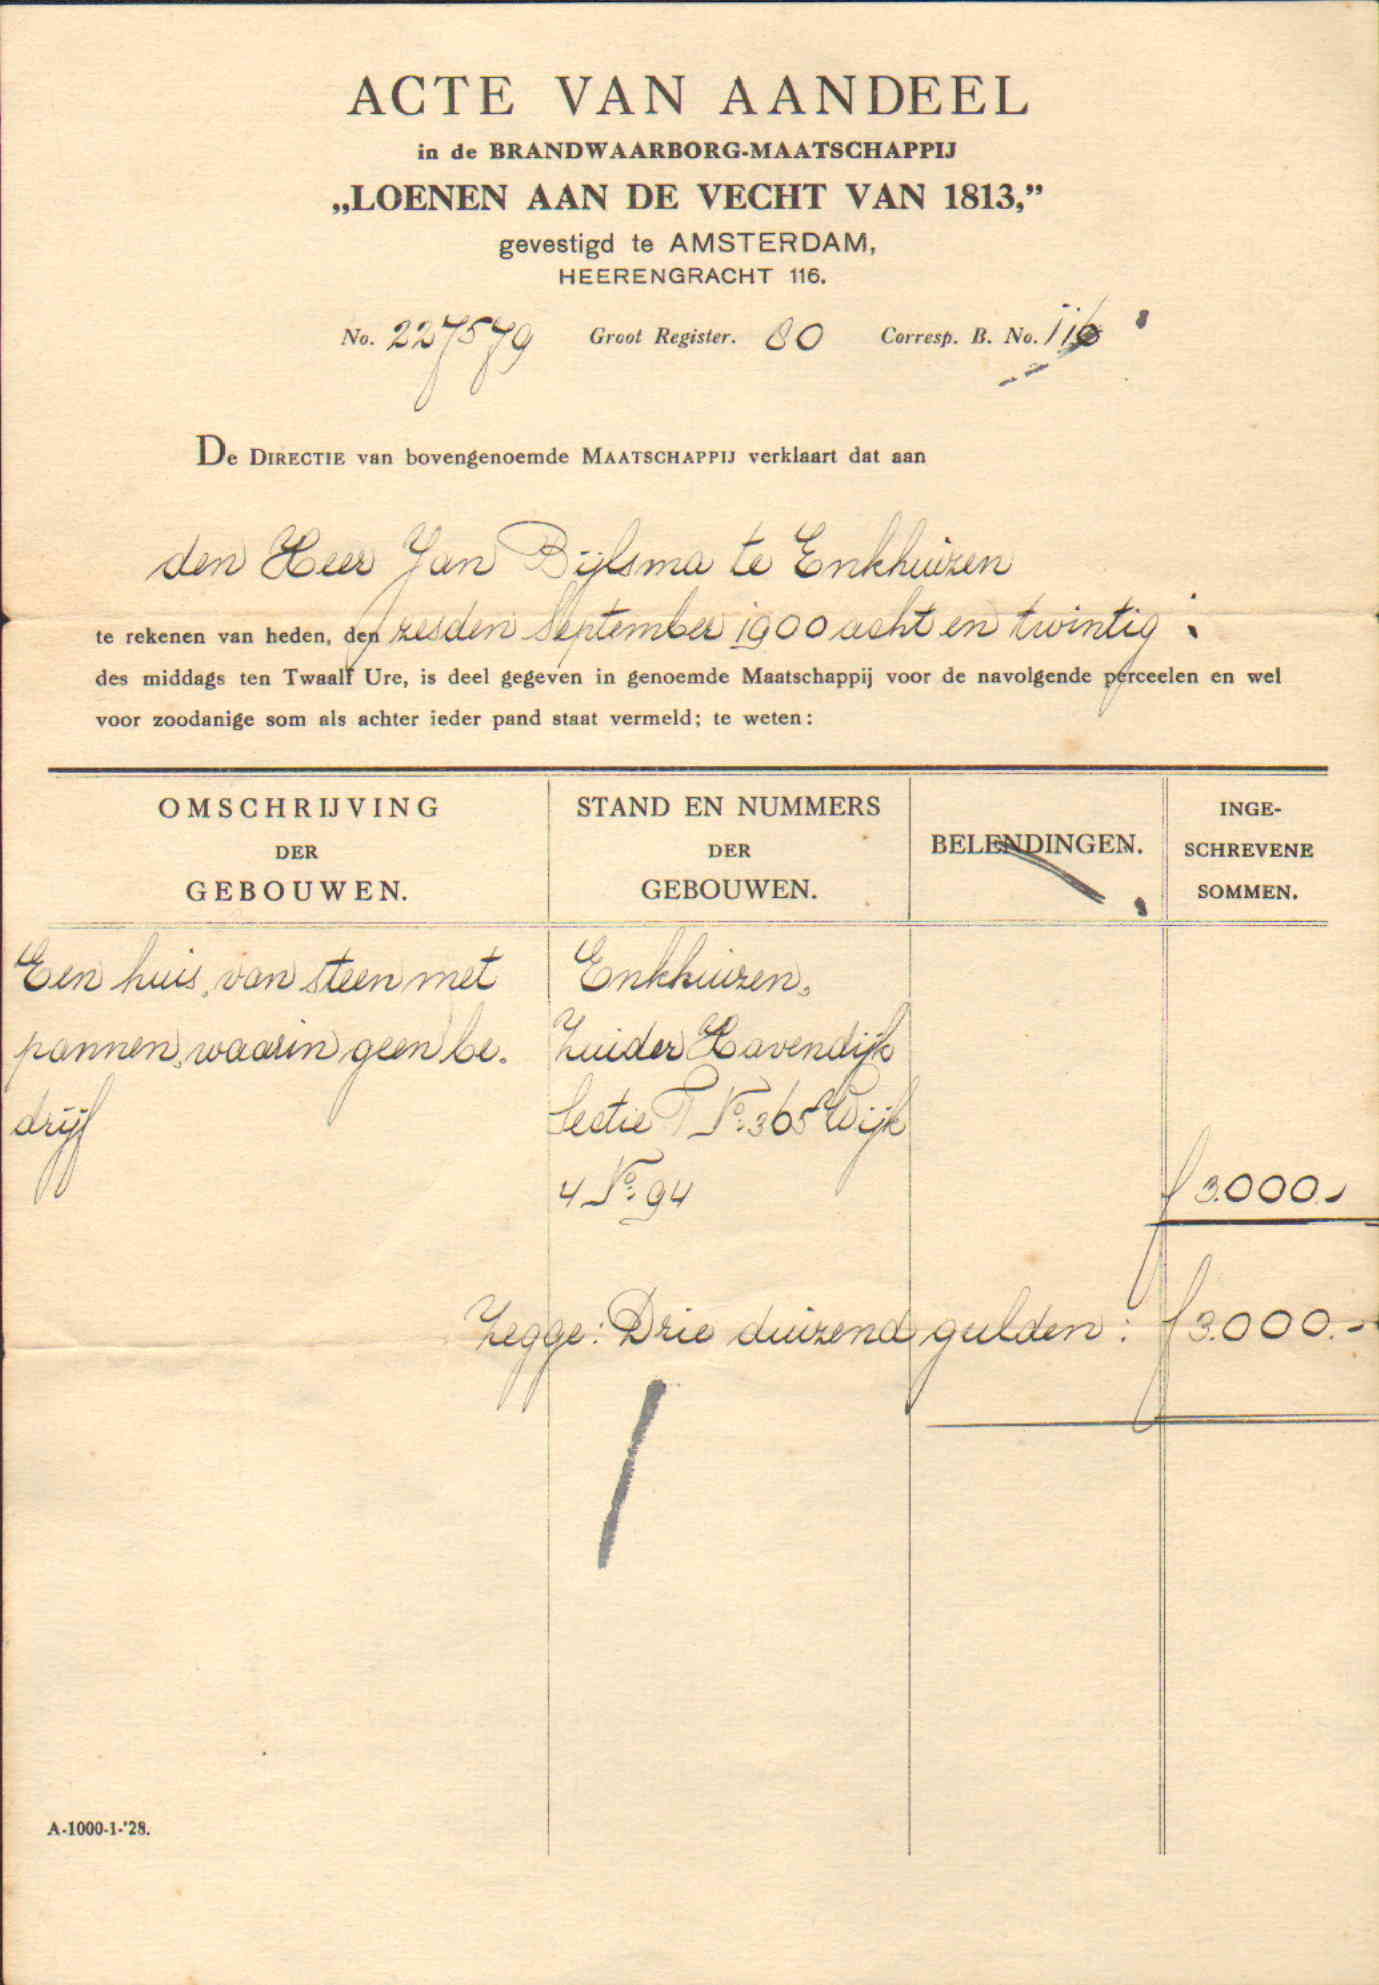 ACTE VAN AANDEEL
in de BRANDWAARBORG-MAATSCHAPPIJ
„LOENEN AAN DE VECHT VAN 1813,”
gevestigd te AMSTERDAM,
HEERENGRACHT 116.
No. 227579 Groot Register. 80 Corresp. B. No. 116
De DIRECTIE van bovengenoemde MAATSCHAPPIJ verklaart dat aan
den Heer Jan Bijlsma te Enkhuizen
te rekenen van heden, den zesden September 1900 acht en twintig
des middags ten Twaalf Ure, is deel gegeven in genoemde Maatschappij voor de navolgende perceelen en wel
voor zoodanige som als achter ieder pand staat vermeld; te weten:
OMSCHRIJVING DER GEBOUWEN.
STAND EN NUMMERS DER GEBOUWEN.
BELENDINGEN.
INGE-
SCHREVENE
SOMMEN.
Een huis, van steen met
pannen, waarin geen be-
drijf
Enkhuizen,
Zuider Havendijk
Sectie F No. 365 Wijk
4 No. 94
f 3.000.-
Zegge: Drie duizend gulden: f 3.000.-
A-1000-1-'28.